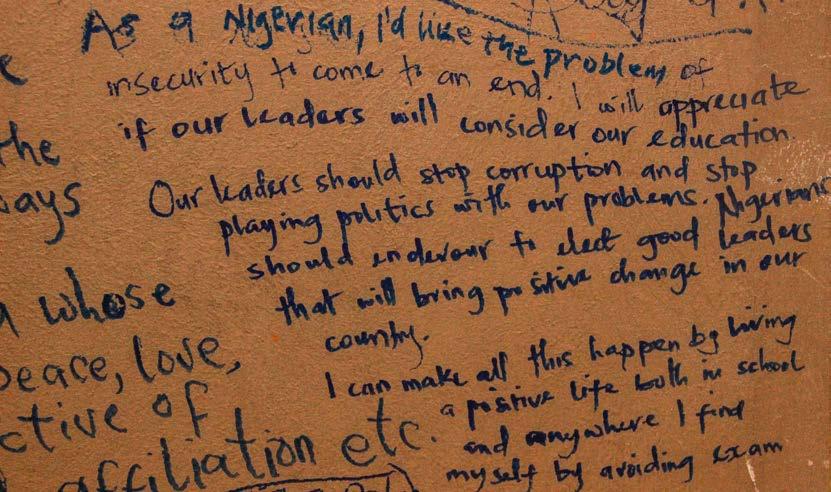 As a Nigerian, I'd like the problem of
insecurity to come to an end. I will appreciate
if our leaders will consider our education.
Our leaders should stop corruption and stop
playing politics with our problems. Nigerians
should endevour to elect good leaders
that will bring positive change in our
country.
I can make all this happen by living
a positive life both in school
and anywhere I find
myself by avoiding exam
the
ays
whose
peace, love,
ctive of
affiliation etc.